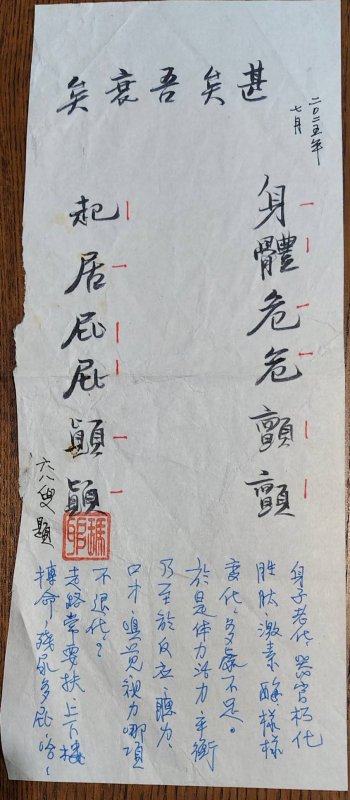 甚矣吾衰矣
二〇二五年
七月
身體危危顫顫
起居屁屁顛顛
六八叟題
身子老化。器官朽化
胜肽激素酶樣樣
變化,多處不足。
於是体力活力平衡
乃至於反应聽力
口才嗅觉視力哪項
不退化?
走路常要扶上下樓
搏命,殘尿多屁哈